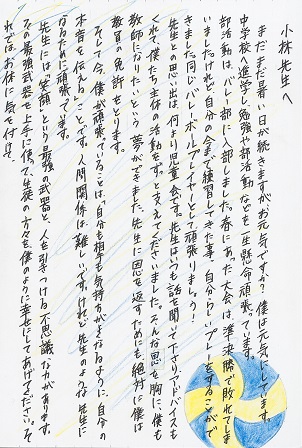 小林先生へ
まだまだ暑い日が続きますがお元気ですか？僕は元気にしてます。
中学校へ進学し勉強や部活動などを一生懸命頑張っています。
部活動は、バレー部に入部しました。春にあった大会は準決勝で敗れてしま
いましたけれど自分の今まで練習してきた事、自分らしいプレーをすることがで
きました。同じバレーボールプレイヤーとして頑張りましょう！
先生との思い出は、何より児童会です。先生はいつも話を聞いて下さりアドバイスを
くれ「僕たち主体の活動をする。」と支えてくださいました。そんな恩を胸に僕も
教師になりたいという夢ができました。先生に恩を返すためにも絶対に僕は
教員の免許をとります。
そして今、僕が頑張っていることは「自分も相手も気持ちがよくなるように、自分の
本音を伝える」ことです。人間関係は難しいです。けれど先生のような先生に
なるために頑張ってます。
先生には「笑顔」という最強の武器と、人を引きつける不思議な力があります。
その最強武器を上手に使って生徒の方々を僕のように幸せにしてあげてください。そ
れではお体に気を付けて。